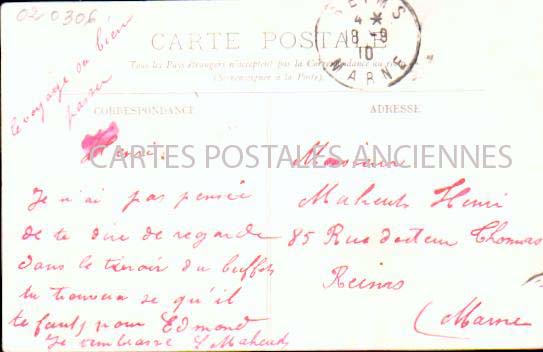 020306
CARTE POSTALE
Tous les Pays étrangers n'acceptent pas la Correspondance au
(Se renseigner à la Poste).
REIMS
4 *
8-9
10
MARNE
le voyage a bien
passer
CORRESPONDANCE
ADRESSE
CARTES POSTALES ANCIENNES
Henri.
Je n'ai pas pensée
de te dire de regarde
dans le tiroir du buffet
tu trouvera se qu'il
te faut pour Edmond
Je t'embrasse
Monsieur
Maheut Henri
85 Rue docteur Thomas
Reims
(Marne